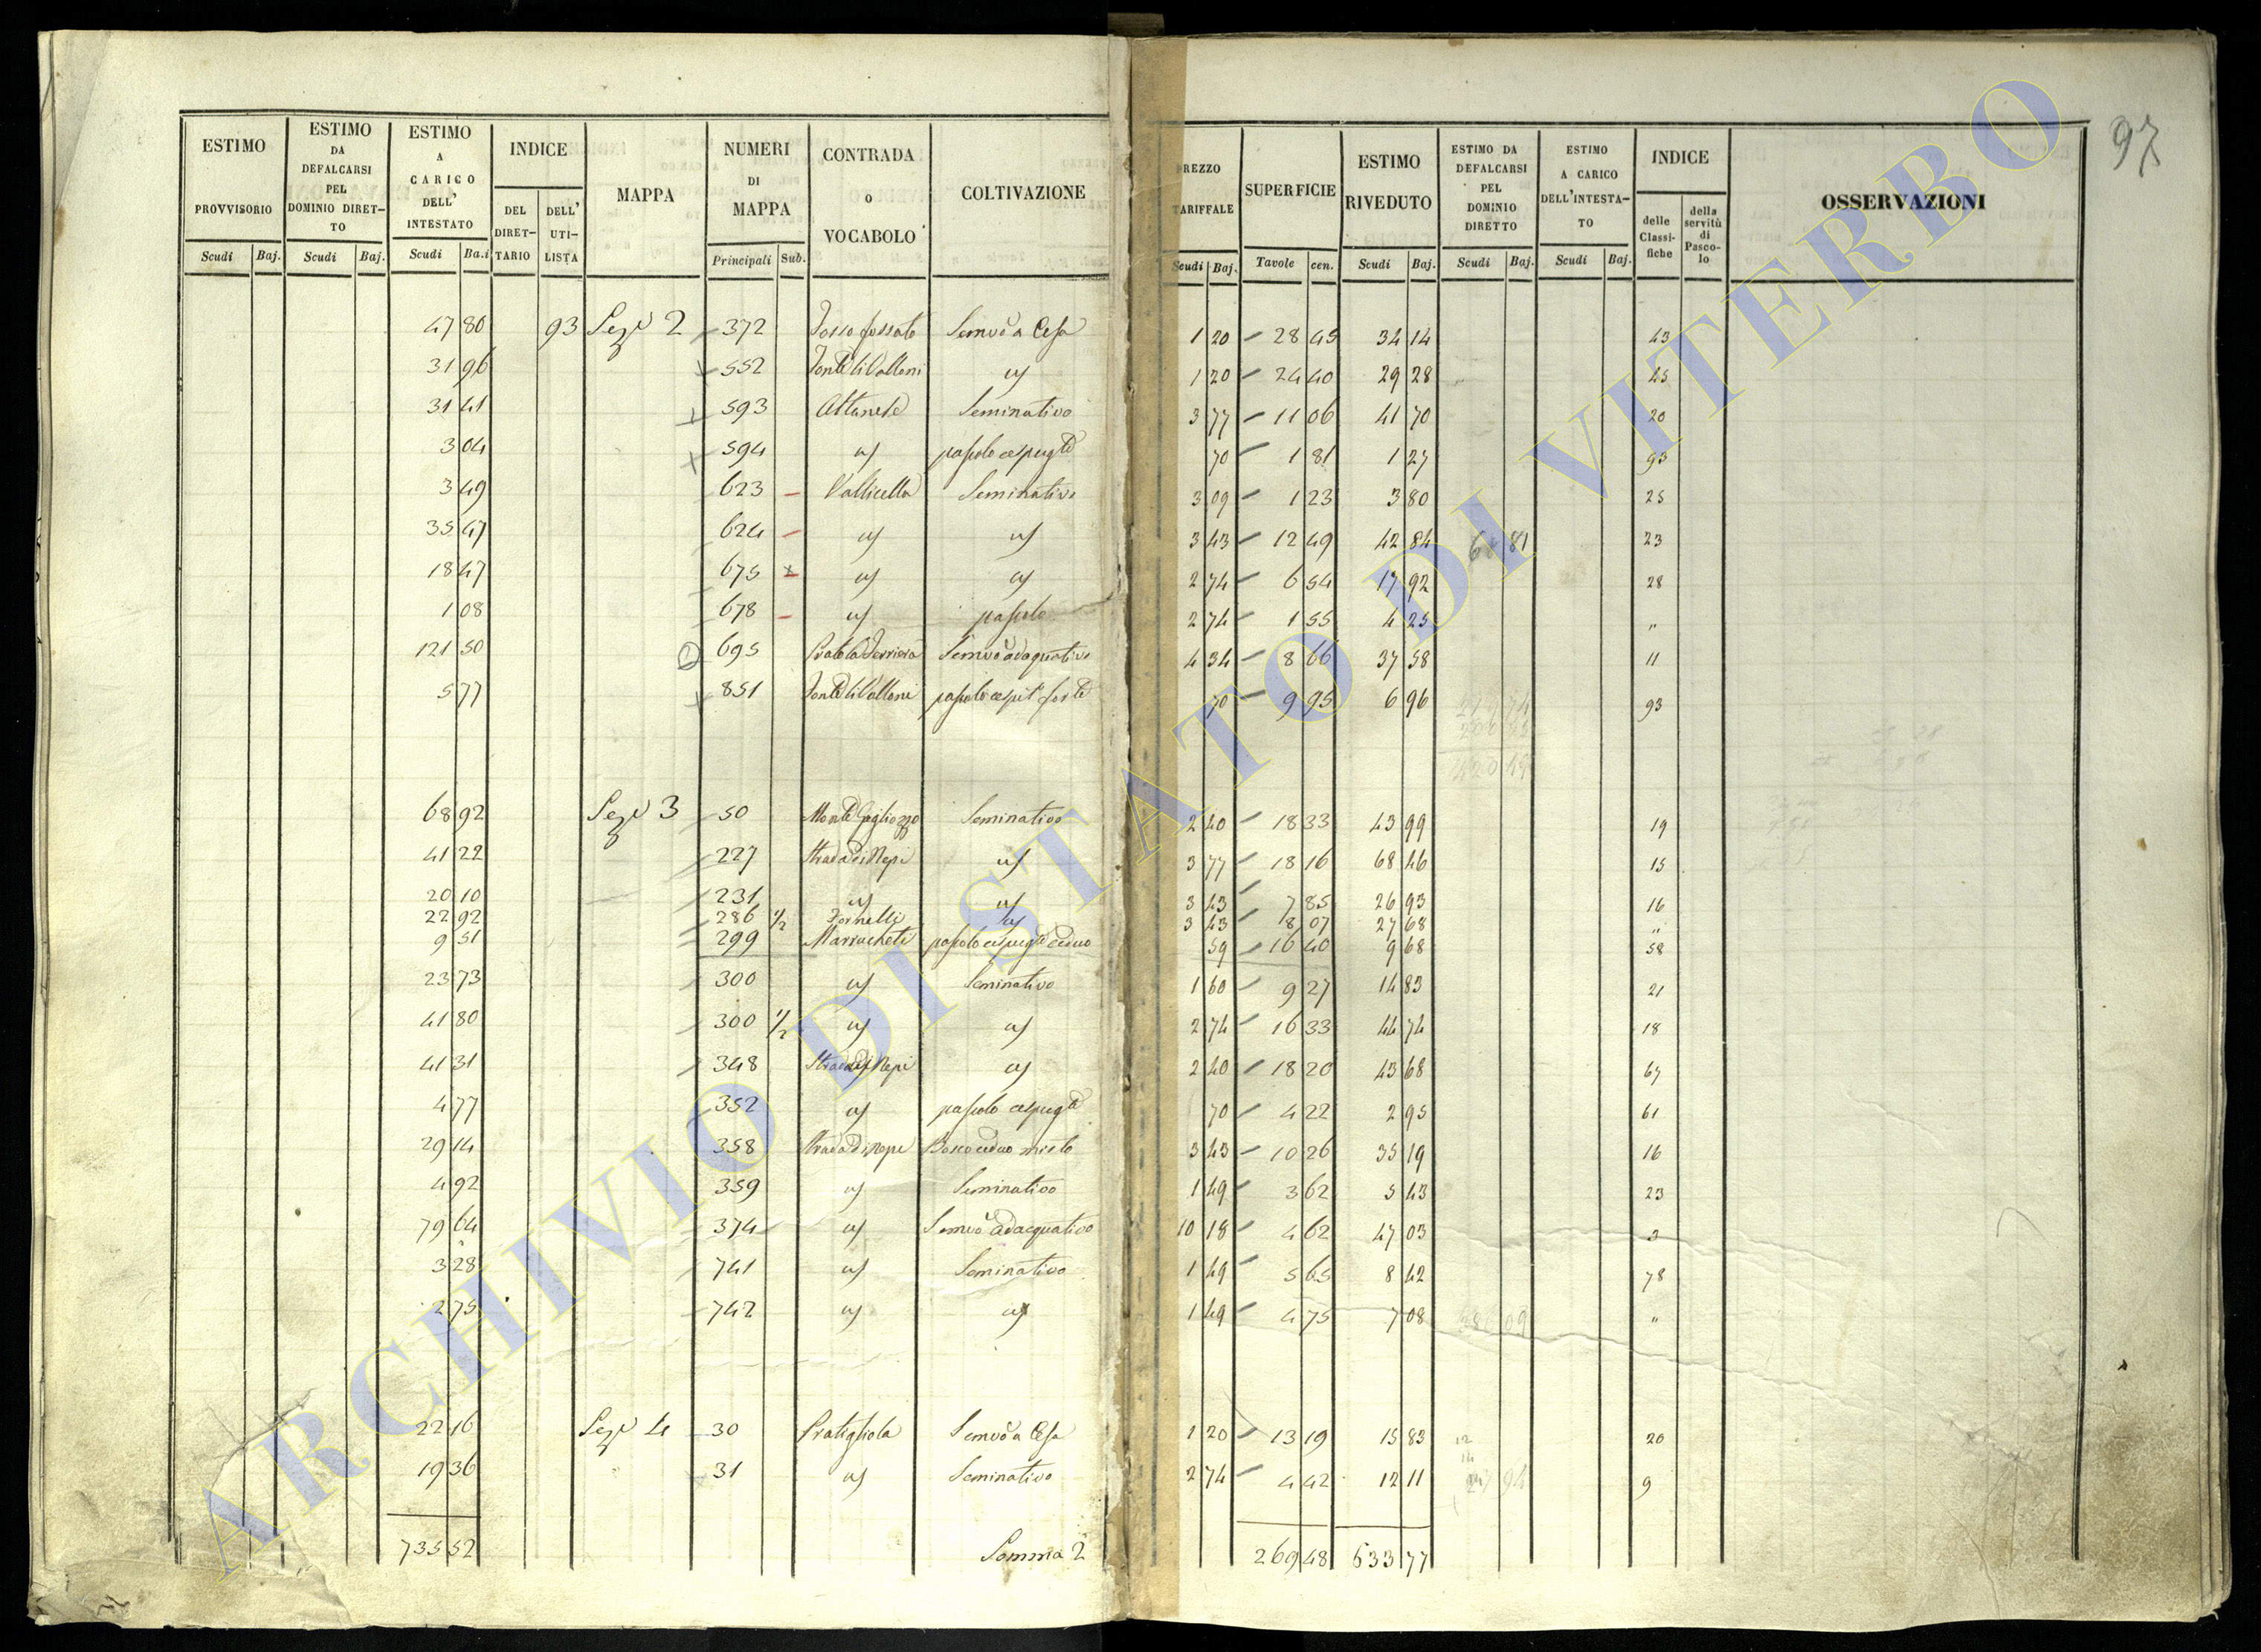 97
ESTIMO PROVVISORIO Scudi Baj.
ESTIMO DA DEFALCARSI PEL DOMINIO DIRET-TO Scudi Baj.
ESTIMO A CARICO DELL' INTESTATO Scudi Ba.i
INDICE DEL DIRET-TARIO DELL' UTI-LISTA
MAPPA
NUMERI DI MAPPA Principali Sub.
CONTRADA O VOCABOLO
COLTIVAZIONE
PREZZO TARIFFALE Scudi Baj.
SUPERFICIE Tavole cen.
ESTIMO RIVEDUTO Scudi Baj.
ESTIMO DA DEFALCARSI PEL DOMINIO DIRETTO Scudi Baj.
ESTIMO A CARICO DELL'INTESTA-TO Scudi Baj.
INDICE delle Classi-fiche della servitù di Pasco-lo
OSSERVAZIONI
47 80 93 Sezᵉ 2 372 Fosso fossato Semvo a Cesa 1 20 28 45 34 14 43
31 96 552 Fonte li Valloni u/ 1 20 24 40 29 28 45
31 41 593 Attanese Seminativo 3 77 11 06 41 70 20
3 04 594 u/ pascolo cespugto 70 1 81 1 27 93
3 49 623 Vallicella Seminativo 3 09 1 23 3 80 25
35 47 624 u/ u/ 3 43 12 49 42 84 81 23
18 47 675 u/ u/ 2 74 6 54 17 92 28
1 08 678 u/ pascolo 2 74 1 55 4 25 "
121 50 695 Prato la Ferriera Semvo adaquativo 4 34 8 66 37 58 11
5 77 851 Fonte li Valloni pascolo cespit forte 70 9 95 6 96 93
68 92 Sezᵉ 3 50 Monte Gagliozzo Seminativo 2 40 18 33 43 99 19
41 22 227 Strada di Nepi u/ 3 77 18 16 68 46 15
20 10 231 u/ u/ 3 43 7 85 26 93 16
22 92 286 1/2 Fornelli u/ 3 43 8 07 27 68 "
9 51 299 Marracheti pascolo cespugto ceduo 59 16 40 9 68 58
23 73 300 u/ Seminativo 1 60 9 27 14 83 21
41 80 300 1/2 u/ u/ 2 74 16 33 44 74 18
41 31 348 Strada di Nepi u/ 2 40 18 20 43 68 67
4 77 352 u/ pascolo cespugto 70 4 22 2 95 61
29 14 358 Strada di Nepi Bosco ceduo misto 3 43 10 26 35 19 16
4 92 359 u/ Seminativo 1 49 3 62 5 43 23
79 64 374 u/ Semvo adacquativo 10 18 4 62 47 03 3
3 28 741 u/ Seminativo 1 49 5 65 8 42 78
2 75 742 u/ u/ 1 49 4 75 7 08 "
22 16 Sezᵉ 4 30 Pratigliola Semvo a Cesa 1 20 13 19 15 83 20
19 36 31 u/ Seminativo 2 74 4 42 12 11 9
735 52 Somma 2 269 48 633 77
ARCHIVIO DI STATO DI VITERBO